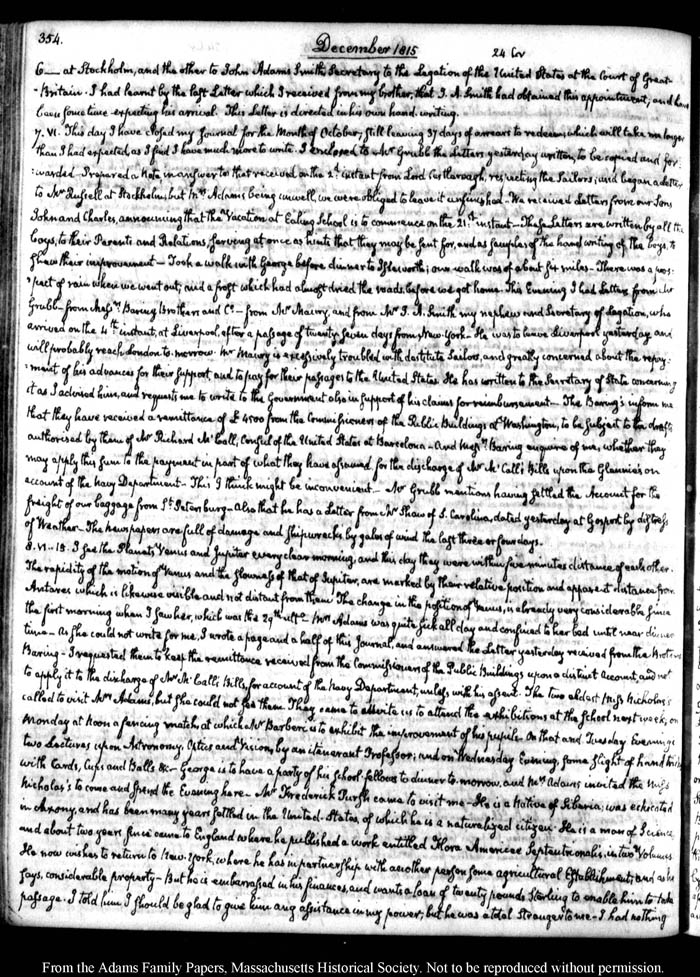 354.
December 1815
24 Cov
6— at Stockholm, and the other to John Adams Smith, Secretary to the Legation of the United States at the Court of Great
-Britain. I had learnt by the last Letter which I received from my brother, that J. A. Smith had obtained this appointment, and have
been some time expecting his arrival. This Letter is directed in his own hand-writing.
7. VI. This day I have closed my Journal for the Month of October; still leaving 37 days of arrears to redeem; which will take me longer
than I had expected, as I find I have much more to write. I enclosed to Mr Grubb the Letters yesterday written, to be copied and for-
:warded. Prepared a Note in answer to that received on the 2d instant from Lord Castlereagh, respecting the Sailors; and began a Letter
to Mr Russell at Stockholm, but Mrs Adams being unwell, we were obliged to leave it unfinished. We received Letters from our Sons
John and Charles, announcing that the Vacation at Ealing School is to commence on the 21st instant— These Letters are written by all the
boys, to their Parents and Relations, serving at once as hints that they may be sent for, and as samples of the hand writing of the boys, to
shew their improvement— Took a walk with George before dinner to Isleworth; our walk was of about 5¼ miles— There was a pros-
:pect of rain when we went out; and a frost which had almost dried the roads, before we got home. This Evening I had Letters from Mr
Grubb— from Messrs Baring Brothers and Co— from Mr Maury, and from Mr J. A. Smith my nephew and Secretary of Legation, who
arrived on the 4th instant, at Liverpool, after a passage of twenty seven days from New-York— He was to leave Liverpool yesterday and
will probably reach London to-morrow. Mr Maury is excessively troubled with destitute Sailors, and greatly concerned about the repay-
:ment of his advances for their support, and to pay for their passages to the United States. He has written to the Secretary of State concerning
it as I advised him, and requests me to write to the Government also in support of his claims for reimbursement— The Baring's inform me
that they have received a remittance of £4500 from the Commissioners of the Public Buildings at Washington, to be subject to the drafts
authorised by them of Mr Richard McCall, Consul of the United States at Barcelona— And Messrs Baring enquire of me, whether they
may apply this sum to the payment in part of what they have assumed, for the discharge of Mr McCall's Bills upon the Glennie's on
account of the Navy Department— This I think might be inconvenient— Mr Grubb mentions having settled the Account for the
freight of our baggage from St Petersburg— Also that he has a Letter from Mr Shaw of S. Carolina, dated yesterday at Gosport by distress
of Weather— The newspapers are full of damage and shipwrecks by gales of wind the last three or four days.
8. VI.—18. I see the Planets Venus and Jupiter every clear morning, and this day they were within five minutes distance of each other.
The rapidity of the motion of Venus and the slowness of that of Jupiter, are marked by their relative position and apparent distance from
Antares which is likewise visible and not distant from them. The change in the position of Venus, is already very considerable since
the first morning when I saw her, which was the 29th ulto— Mrs Adams was quite sick all day and confined to her bed until near dinner
time— As she could not write for me, I wrote a page and a half of this Journal, and answered the Letter yesterday received from the Brothers
Baring— I requested them to keep the remittance received from the Commissioners of the Public Buildings upon a distinct account, and not
to apply it to the discharge of Mr McCall's Bills, for account of the Navy Department, unless with his assent. The two eldest Miss Nicholas's
called to visit Mrs Adams, but she could not see them. They came to invite us to attend the exhibitions at the School next week, on
Monday at Noon a fencing match, at which Mr Barberi is to exhibit the improvement of his pupils. On that and Tuesday Evenings
two Lectures upon Astronomy, Optics and Vision, by an itinerant Professor; and on Wednesday Evening, some slight of hand tricks
with Cards, Cups and Balls &c— George is to have a party of his school-fellows to dinner to-morrow, and Mrs Adams invited the Miss
Nicholas's to come and spend the Evening here— Mr Frederick Pursh came to visit me— He is a Native of Siberia; was educated
in Saxony, and has been many years settled in the United-States, of which he is a naturalized citizen. He is a man of Science,
and about two years since came to England where he published a work entitled Flora Americae Septentrionalis, in two Volumes
He now wishes to return to New-York, where he has in partnership with another person some agricultural Establishment; and as he
says, considerable property— But he is embarrassed in his finances, and wants a loan of twenty pounds Sterling to enable him to take
passage. I told him I should be glad to give him any assistance in my power; but he was a total Stranger to me— I had nothing
From the Adams Family Papers, Massachusetts Historical Society. Not to be reproduced without permission.